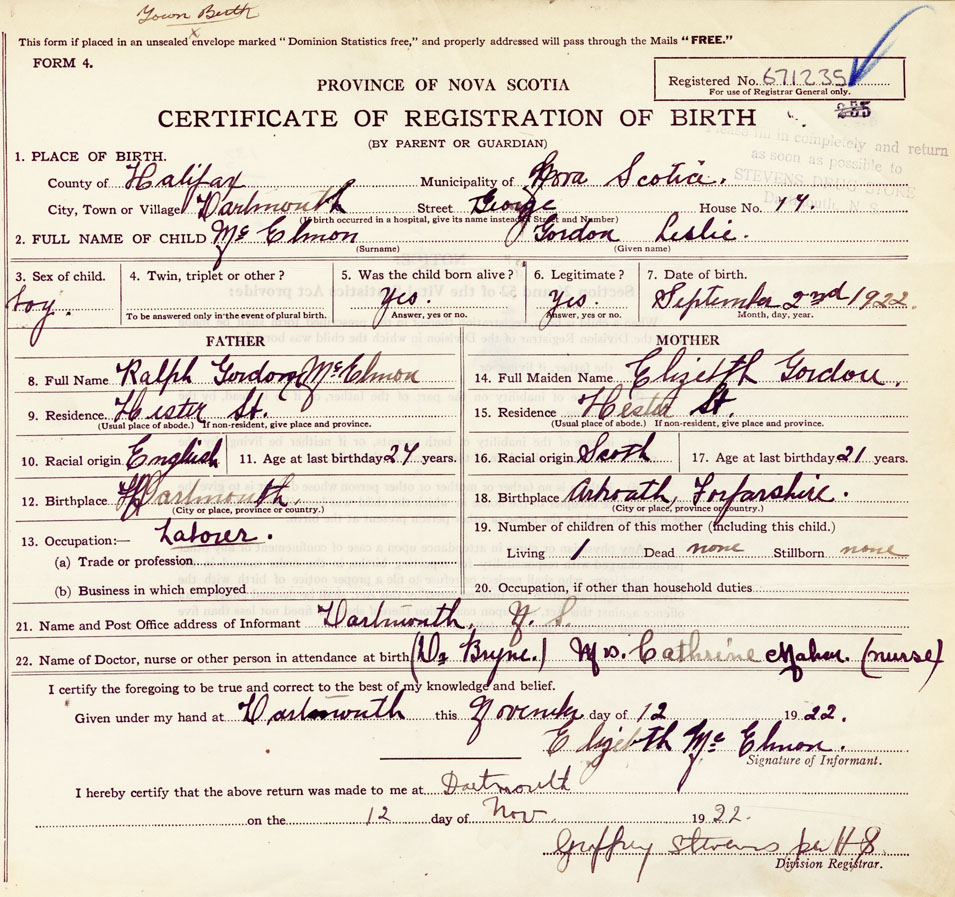 Town Birth
This form if placed in an unsealed envelope marked "Dominion Statistics free," and properly addressed will pass through the Mails "FREE."
FORM 4.
Registered No. 671235
For use of Registrar General only.
PROVINCE OF NOVA SCOTIA
CERTIFICATE OF REGISTRATION OF BIRTH
(BY PARENT OR GUARDIAN)
Please fill in completely and return
as soon as possible to
STEVENS DRUG STORE
Dartmouth, N. S.
1. PLACE OF BIRTH.
County of Halifax Municipality of Nova Scotia.
City, Town or Village Dartmouth Street George House No. 14.
(If birth occurred in a hospital, give its name instead of Street and Number)
2. FULL NAME OF CHILD Mc Elmon Gordon Leslie.
(Surname) (Given name)
3. Sex of child. boy.
4. Twin, triplet or other?
To be answered only in the event of plural birth.
5. Was the child born alive? Yes.
Answer, yes or no.
6. Legitimate? Yes.
Answer, yes or no.
7. Date of birth. September 2nd 1922.
Month, day, year.
FATHER
8. Full Name Ralph Gordon McElmon
9. Residence Hester St.
(Usual place of abode.) If non-resident, give place and province.
10. Racial origin English 11. Age at last birthday 24 years.
12. Birthplace Dartmouth.
(City or place, province or country.)
13. Occupation:— Laborer.
(a) Trade or profession
(b) Business in which employed
MOTHER
14. Full Maiden Name Elizebth Gordon.
15. Residence Hester St.
(Usual place of abode.) If non-resident, give place and province.
16. Racial origin Scoth 17. Age at last birthday 21 years.
18. Birthplace Arbroath, Forfarshire.
(City or place, province or country.)
19. Number of children of this mother (including this child.)
Living 1 Dead none Stillborn none
20. Occupation, if other than household duties
21. Name and Post Office address of Informant Dartmouth, N. S.
22. Name of Doctor, nurse or other person in attendance at birth (Dr Bryne.) Mrs. Cathrine Maher. (nurse)
I certify the foregoing to be true and correct to the best of my knowledge and belief.
Given under my hand at Dartmouth this November day of 12 1922.
Elizebth Mc Elmon.
Signature of Informant.
I hereby certify that the above return was made to me at Dartmouth
on the 12 day of Nov. 1922.
Geoffrey Stevens per H S
Division Registrar.